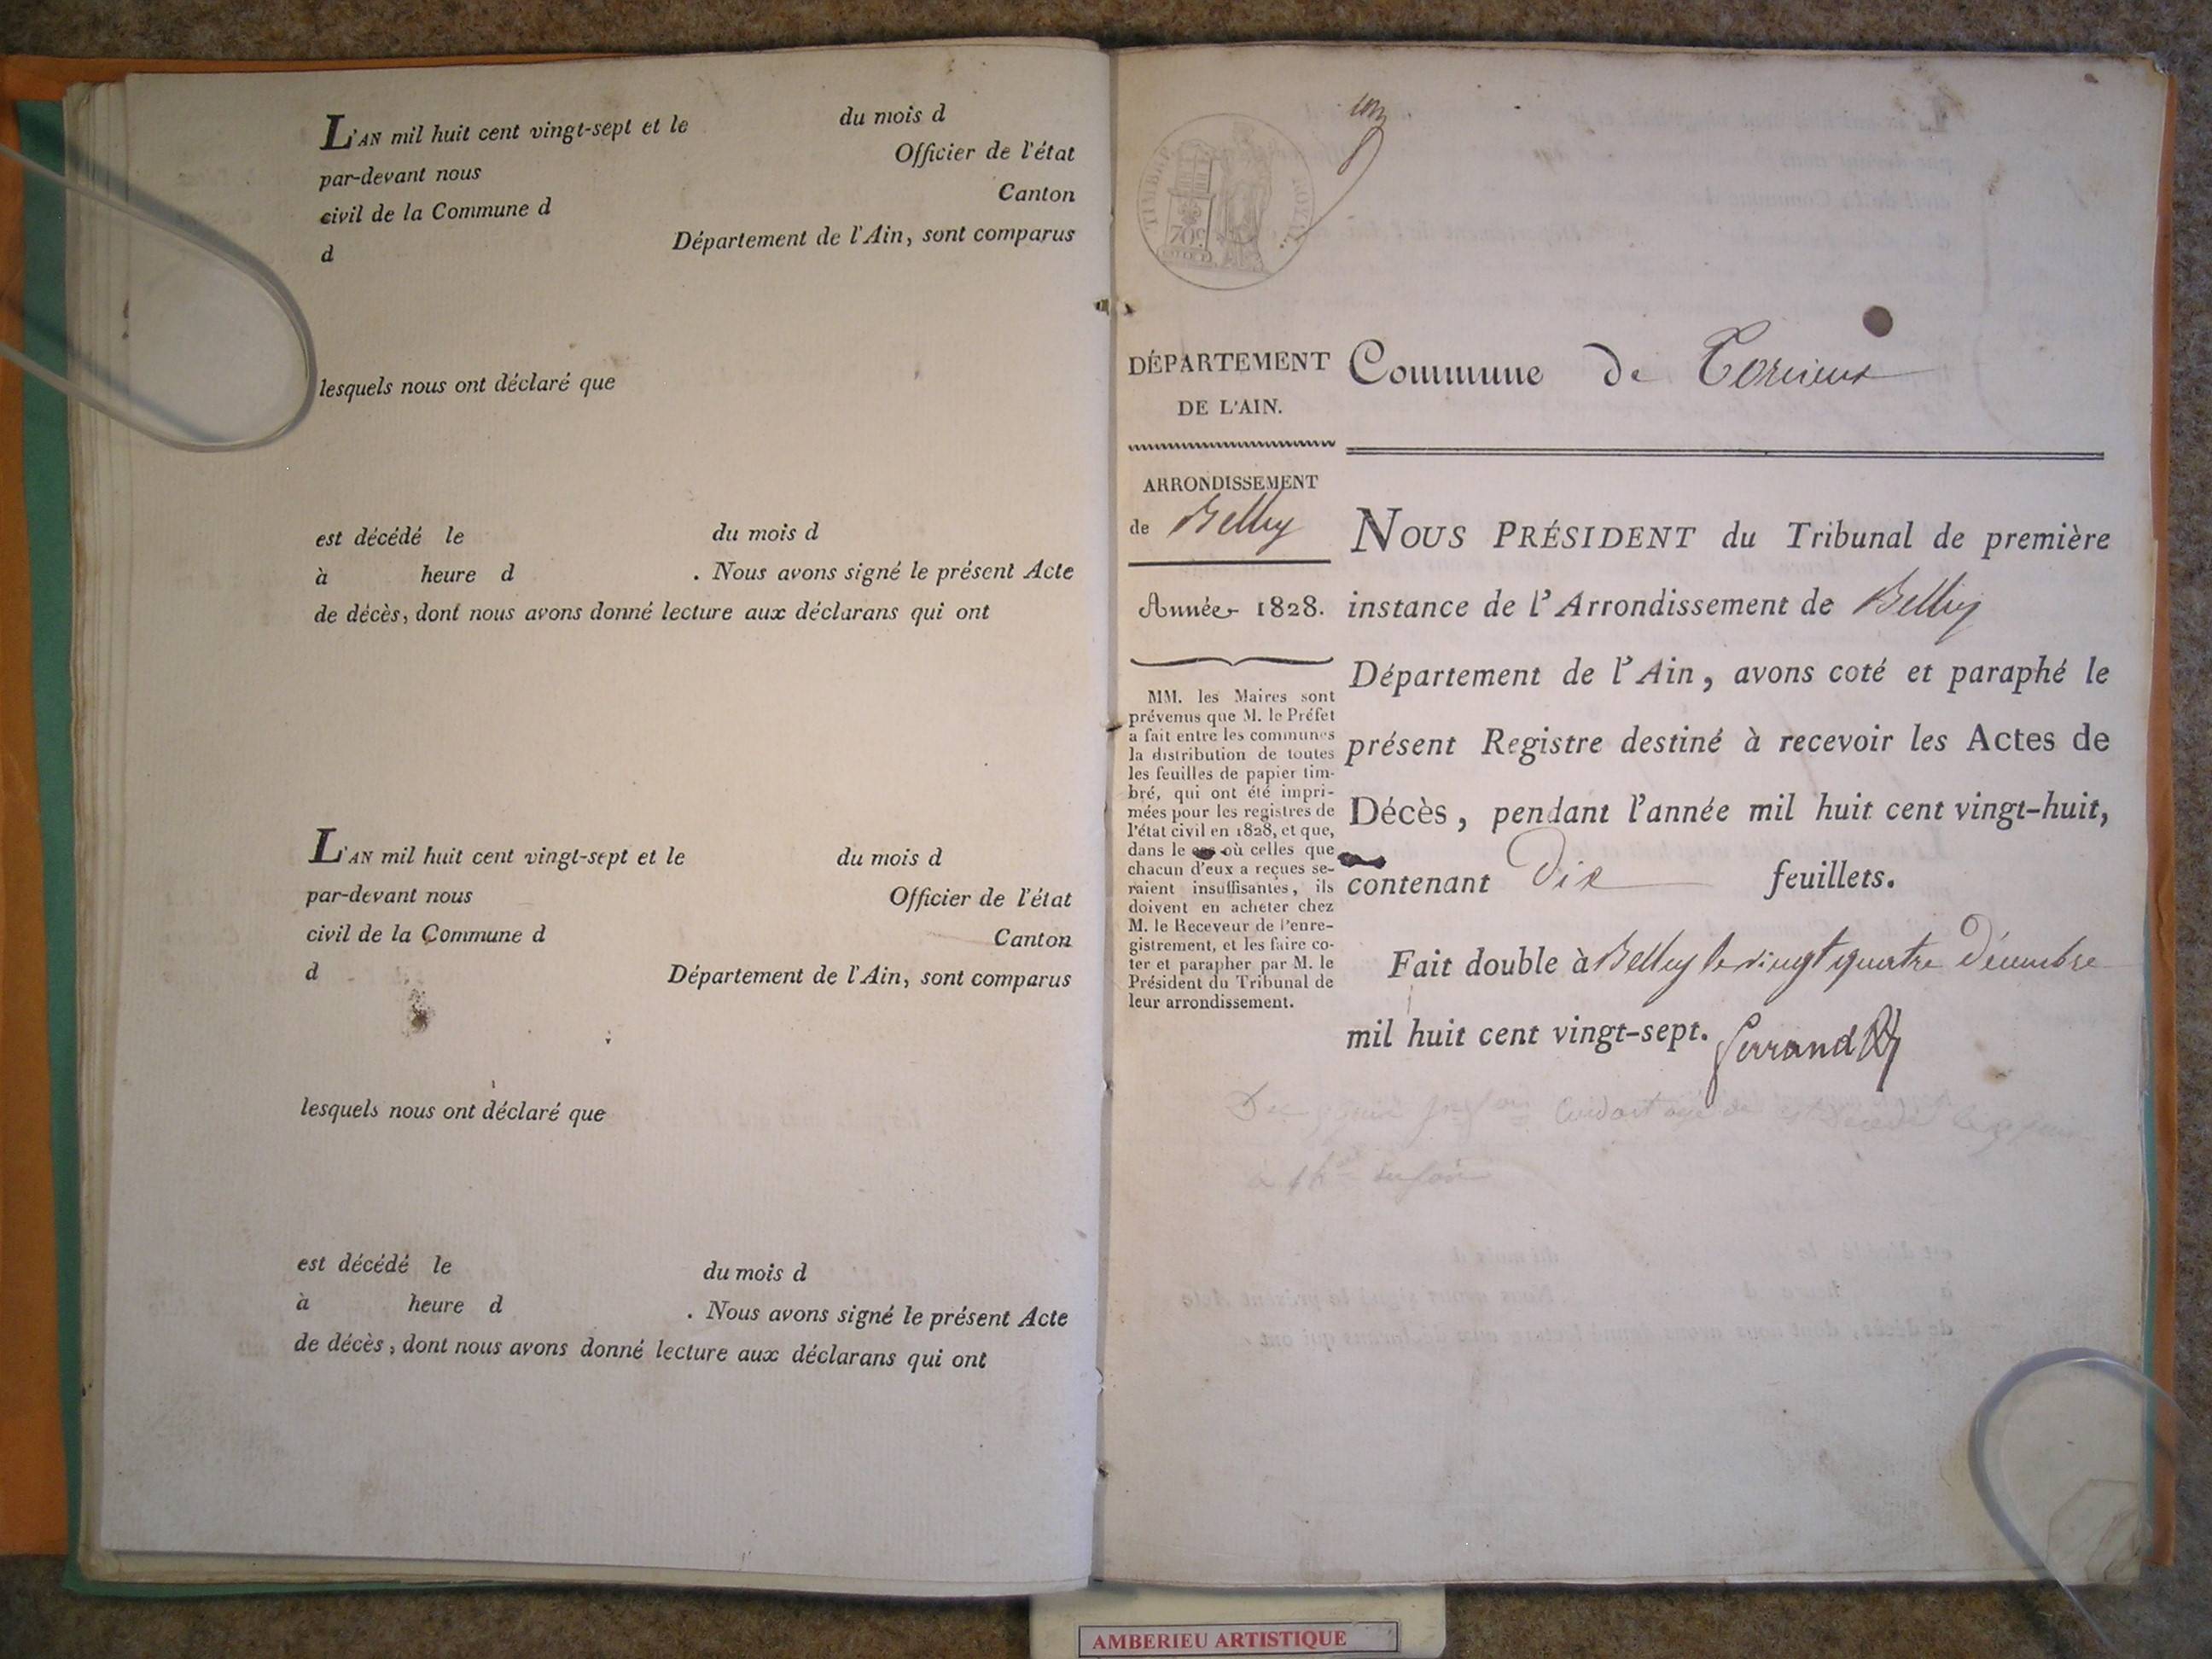 L'AN mil huit cent vingt-sept et le du mois d
par-devant nous Officier de l'état
civil de la Commune d Canton
d Département de l'Ain, sont comparus
lesquels nous ont déclaré que
est décédé le du mois d
à heure d . Nous avons signé le présent Acte
de décès, dont nous avons donné lecture aux déclarans qui ont
L'AN mil huit cent vingt-sept et le du mois d
par-devant nous Officier de l'état
civil de la Commune d Canton
d Département de l'Ain, sont comparus
lesquels nous ont déclaré que
est décédé le du mois d
à heure d . Nous avons signé le présent Acte
de décès, dont nous avons donné lecture aux déclarans qui ont
TIMBRE ROYAL
70c
DÉPARTEMENT
DE L'AIN.
ARRONDISSEMENT
de Belley
Année 1828.
MM. les Maires sont
prévenus que M. le Préfet
a fait entre les communes
la distribution de toutes
les feuilles de papier tim-
bré, qui ont été impri-
mées pour les registres de
l'état civil en 1828, et que,
dans le cas où celles que
chacun d'eux a reçues se-
raient insuffisantes, ils
doivent en acheter chez
M. le Receveur de l'enre-
gistrement, et les faire co-
ter et parapher par M. le
Président du Tribunal de
leur arrondissement.
Commune de Torcieux
NOUS PRÉSIDENT du Tribunal de première
instance de l'Arrondissement de Belley
Département de l'Ain, avons coté et paraphé le
présent Registre destiné à recevoir les Actes de
Décès, pendant l'année mil huit cent vingt-huit,
contenant Dix feuillets.
Fait double à Belley le vingt quatre Décembre
mil huit cent vingt-sept.
AMBERIEU ARTISTIQUE